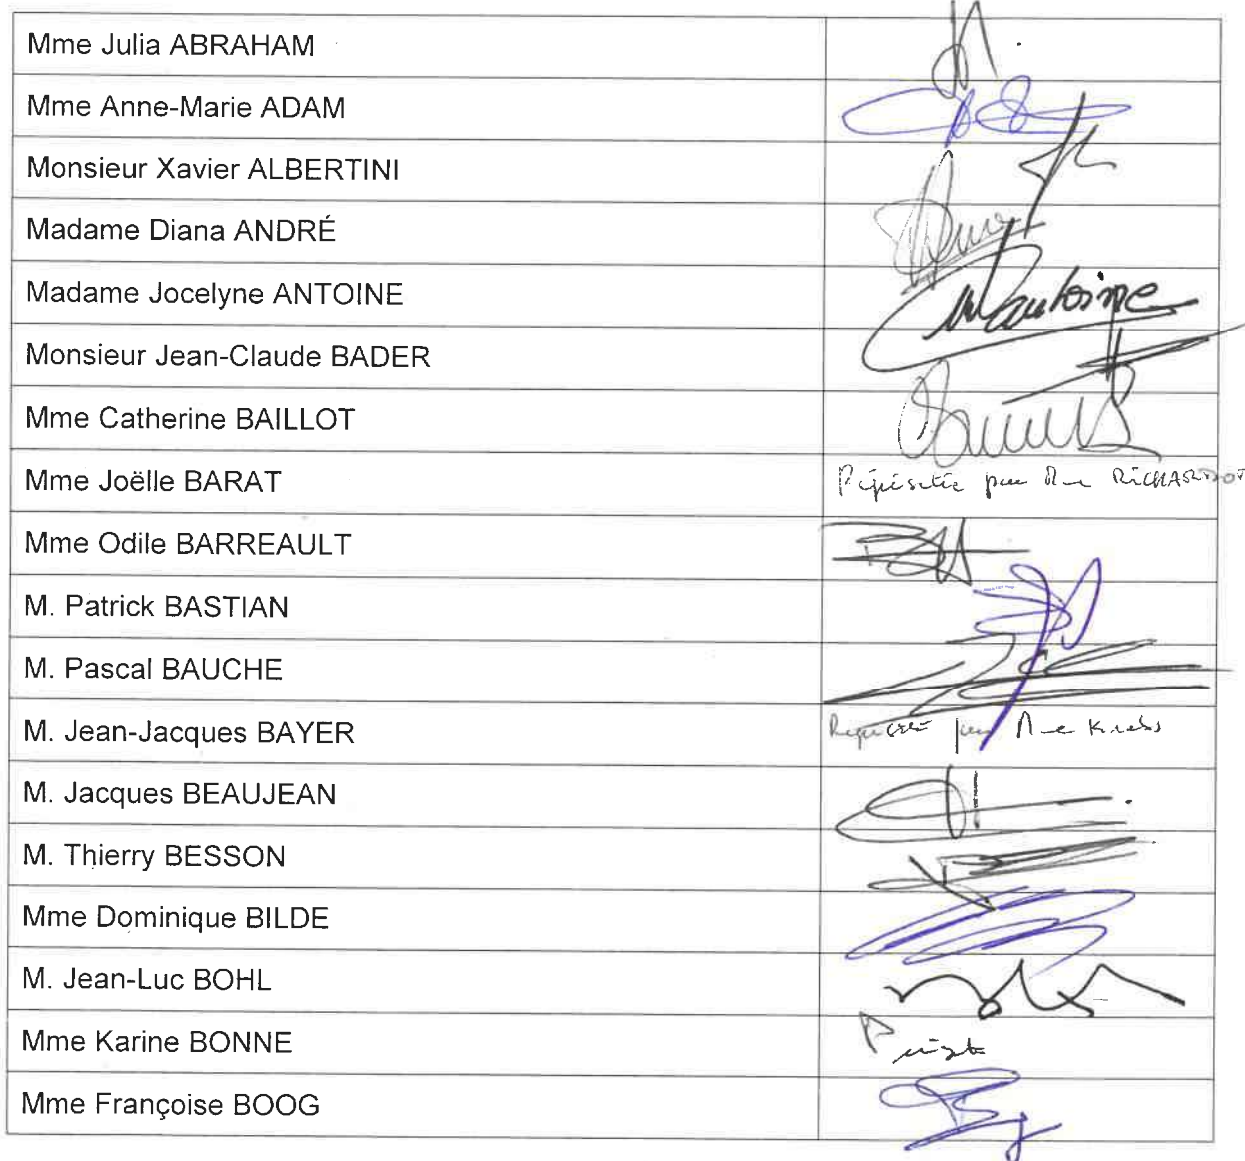 Mme Julia ABRAHAM
Mme Anne-Marie ADAM
Monsieur Xavier ALBERTINI
Madame Diana ANDRÉ
Madame Jocelyne ANTOINE
Monsieur Jean-Claude BADER
Mme Catherine BAILLOT
Mme Joëlle BARAT par RICHARDOT
Mme Odile BARREAULT
M. Patrick BASTIAN
M. Pascal BAUCHE
M. Jean-Jacques BAYER
M. Jacques BEAUJEAN
M. Thierry BESSON
Mme Dominique BILDE
M. Jean-Luc BOHL
Mme Karine BONNE
Mme Françoise BOOG